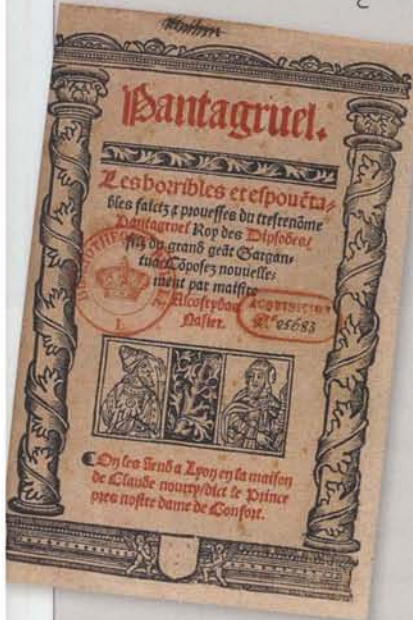 Pantagruel.
Les horribles et espouẽta-
bles faictz ⁊ prouesses du tresrenõme
Pantagruel Roy des Dipsodes/
filz du grand geãt Gargan-
tua/ Cõposez nouuelle-
ment par maistre
Alcofrybas
Nasier.
ACQUISITION
Nº 95683
On les vend a Lyon en la maison
de Claude nourry/dict le Prince
pres nostre dame de Confort.